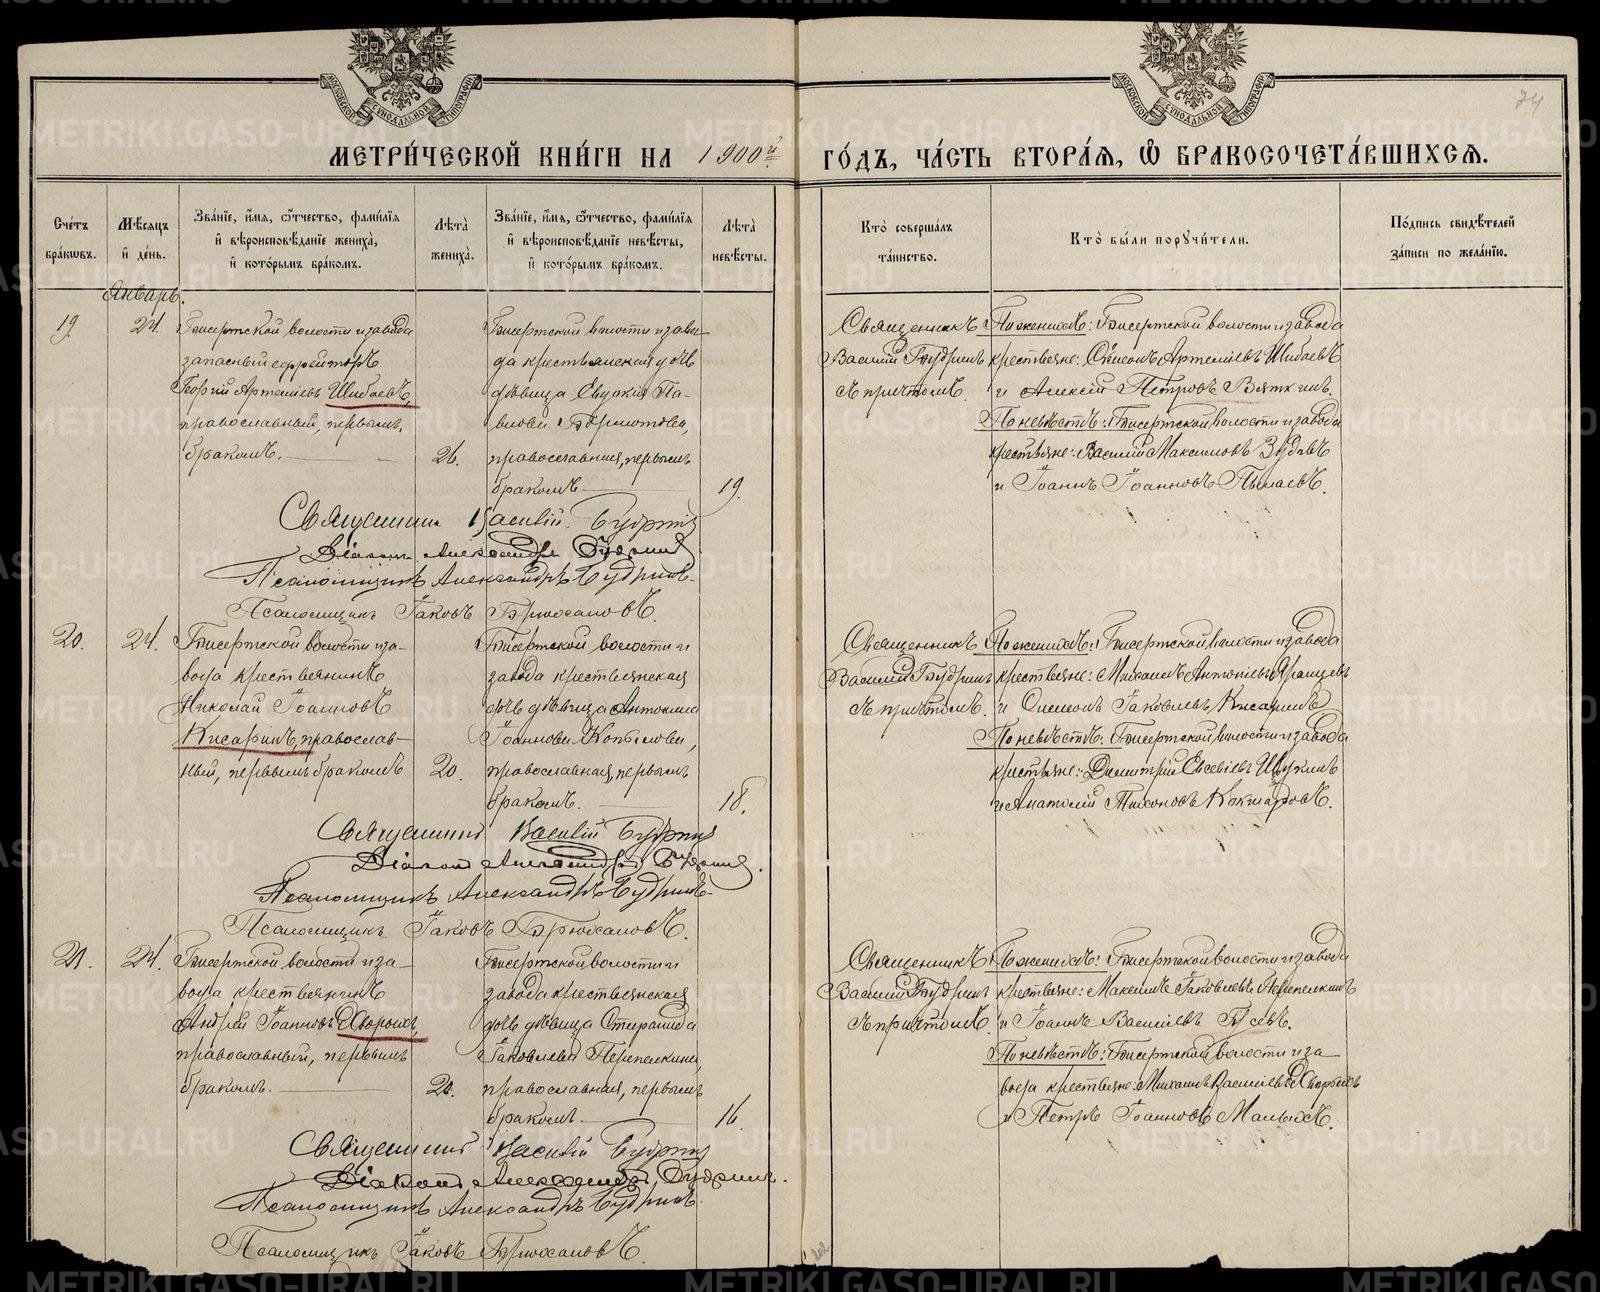 МЕТРИ́ЧЕСКОЙ КНИ́ГИ НА 1900й ГО́ДЪ, ЧА́СТЬ ВТОРА́Я, Ѽ БРАКОСОЧЕТА́ВШИХСЯ.
74
Сче́тъ бра́кѡвъ.
Мѣ́сяцъ и҆ де́нь.
Зва́нїе, и҆́мя, ѻ҆́тчество, фами́лїя и҆ вѣроисповѣ́данїе жениха̀, и҆ кото́рымъ бра́комъ.
Лѣ́та жениха̀.
Зва́нїе, и҆́мя, ѻ҆́тчество, фами́лїя и҆ вѣроисповѣ́данїе невѣ́сты, и҆ кото́рымъ бра́комъ.
Лѣ́та невѣ́сты.
Кто̀ соверша́лъ та́инство.
Кто̀ бы́ли порꙋчи́тели.
По́дпись свидѣ́телей за́писи по жела́нїю.
Январь.
19.
24.
Бисертской волости и завода
запасный ефрейторъ
Георгій Артеміевъ Шибаевъ,
православный, первымъ
бракомъ.
26.
Бисертской волости и заво-
да крестьянская дочь
дѣвица Евдокія Па-
влова
православная, первымъ
бракомъ
19.
Священникъ
Василій Будринъ
съ причтомъ.
По женихѣ: Бисертской волости и завода
крестьяне: Симеонъ Артеміевъ Шибаевъ
и Алексій Петровъ Вяткинъ.
По невѣстѣ: Бисертской волости и завода
крестьяне: Василій Максимовъ Зудовъ
и Іоаннъ Іоанновъ
Священникъ Василій Будринъ
Діаконъ Александръ Будринъ
Псаломщикъ Александръ Будринъ.
Псаломщикъ Іаковъ Брюхановъ.
20.
24.
Бисертской волости и за-
вода крестьянинъ
Николай Іоанновъ
Кисаринъ, православ-
ный, первымъ бракомъ
20.
Бисертской волости и
завода крестьянская
дочь дѣвица Антонина
Іоаннова Копылова,
православная, первымъ
бракомъ.
18.
Священникъ
Василій Будринъ
съ причтомъ.
По женихѣ: Бисертской волости и завода
крестьяне: Михаилъ Антоніевъ
и Симеонъ Іаковлевъ Кисаринъ
По невѣстѣ: Бисертской волости и завода
крестьяне: Димитрій Евсевіевъ Щукинъ
и Анатолій Тихоновъ Кокшаровъ.
Священникъ Василій Будринъ
Діаконъ Александръ Будринъ.
Псаломщикъ Александръ Будринъ.
Псаломщикъ Іаковъ Брюхановъ.
21.
24.
Бисертской волости и за-
вода крестьянинъ
Андрей Іоанновъ
православный, первымъ
бракомъ.
20.
Бисертской волости и
завода крестьянская
дочь дѣвица
Іаковлева Перепелкина,
православная, первымъ
бракомъ.
16.
Священникъ
Василій Будринъ
съ причтомъ.
По женихѣ: Бисертской волости и завода
крестьяне: Максимъ Іаковлевъ Перепелкинъ
и Іоаннъ Васильевъ
По невѣстѣ: Бисертской волости и за-
вода крестьяне: Михаилъ Василіевъ
и Петръ Іоанновъ Малыхъ.
Священникъ Василій Будринъ
Діаконъ Александръ Будринъ.
Псаломщикъ Александръ Будринъ.
Псаломщикъ Іаковъ Брюхановъ.
METRIKI.GASO-URAL.RU